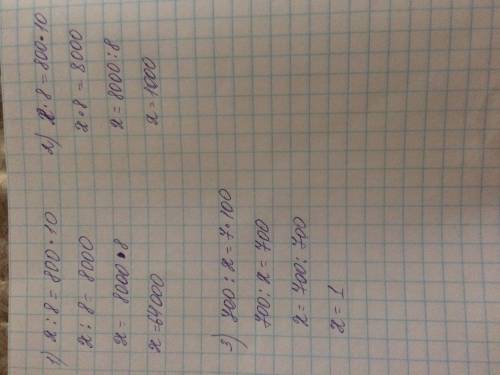 1) x : 8 = 800 • 10
x : 8 = 8000
x = 8000 • 8
x = 64000
2) x • 8 = 800 • 10
x • 8 = 8000
x = 8000 : 8
x = 1000
3) 700 : x = 7 • 100
700 : x = 700
x = 700 : 700
x = 1